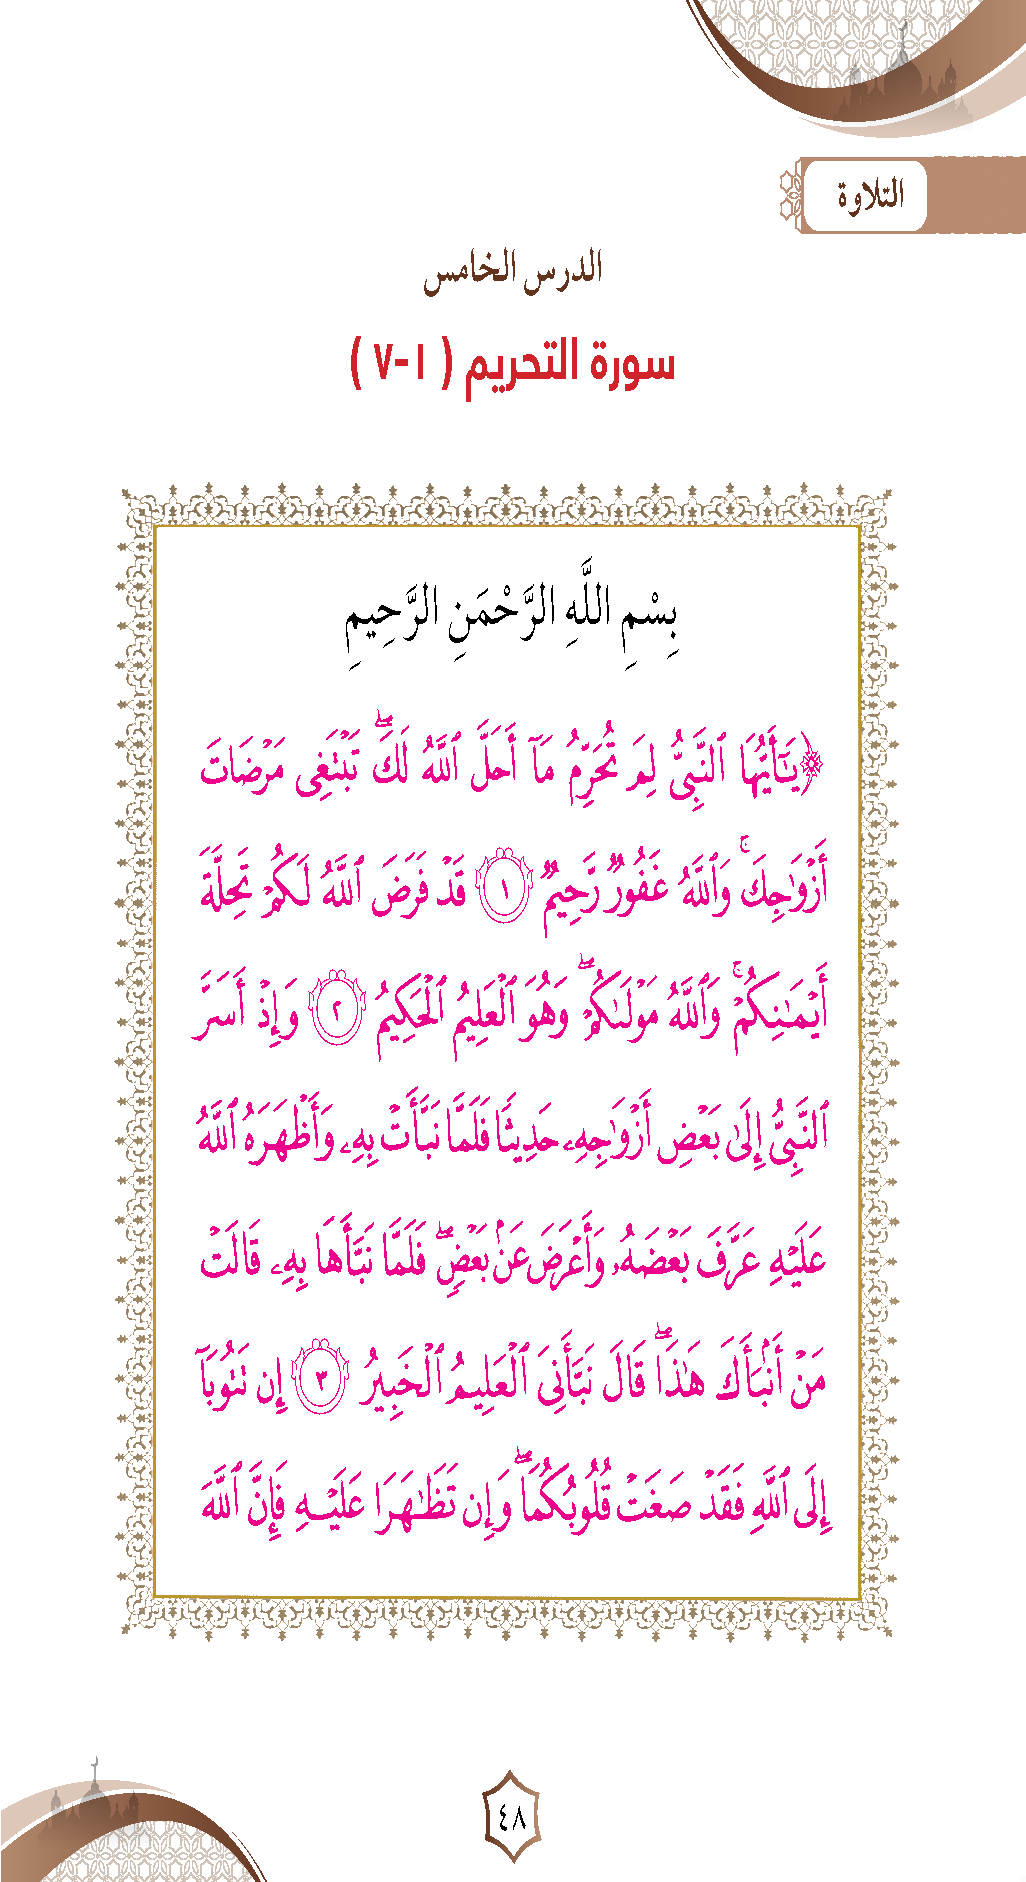 التلاوة
الدرس الخامس
سورة التحريم ( ١-٧ )
بِسْمِ اللَّهِ الرَّحْمَنِ الرَّحِيمِ
﴿يَٰٓأَيُّهَا ٱلنَّبِىُّ لِمَ تُحَرِّمُ مَآ أَحَلَّ ٱللَّهُ لَكَۖ تَبْتَغِى مَرْضَاتَ
أَزْوَٰجِكَۚ وَٱللَّهُ غَفُورٌ رَّحِيمٌ ١ قَدْ فَرَضَ ٱللَّهُ لَكُمْ تَحِلَّةَ
أَيْمَٰنِكُمْۚ وَٱللَّهُ مَوْلَىٰكُمْۖ وَهُوَ ٱلْعَلِيمُ ٱلْحَكِيمُ ٢ وَإِذْ أَسَرَّ
ٱلنَّبِىُّ إِلَىٰ بَعْضِ أَزْوَٰجِهِۦ حَدِيثًا فَلَمَّا نَبَّأَتْ بِهِۦ وَأَظْهَرَهُ ٱللَّهُ
عَلَيْهِ عَرَّفَ بَعْضَهُۥ وَأَعْرَضَ عَنۢ بَعْضٍۖ فَلَمَّا نَبَّأَهَا بِهِۦ قَالَتْ
مَنْ أَنۢبَأَكَ هَٰذَاۖ قَالَ نَبَّأَنِىَ ٱلْعَلِيمُ ٱلْخَبِيرُ ٣ إِن تَتُوبَآ
إِلَى ٱللَّهِ فَقَدْ صَغَتْ قُلُوبُكُمَاۖ وَإِن تَظَٰهَرَا عَلَيْهِ فَإِنَّ ٱللَّهَ
٤٨